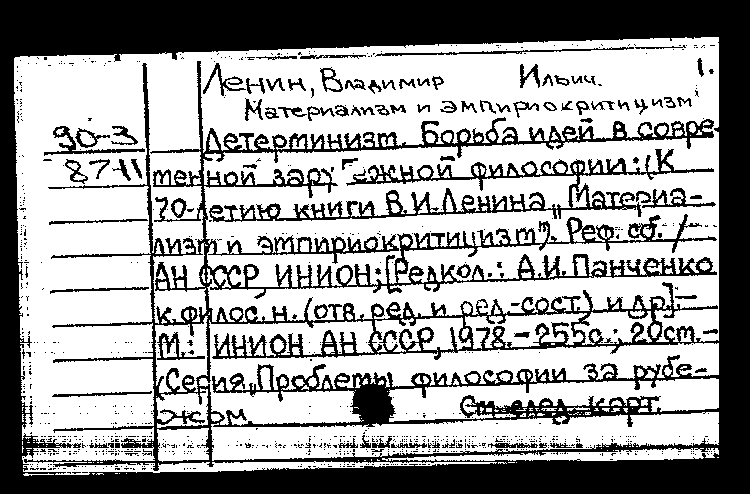 Ленин, Владимир Ильич. 1.
Материализм и эмпириокритицизм
90-3 Детерминизм. Борьба идей в совре-
87-11 менной зарубежной философии: (К
70-летию книги В.И.Ленина „Материа-
лизм и эмпириокритицизм"). Реф. сб. /
АН СССР, ИНИОН; [Редкол.: А.И. Панченко
к.филос.н. (отв. ред. и ред.-сост.) и др]. -
М.: ИНИОН АН СССР, 1978. - 255с.; 20см. -
(Серия „Проблемы философии за рубе-
жом. См след. карт.